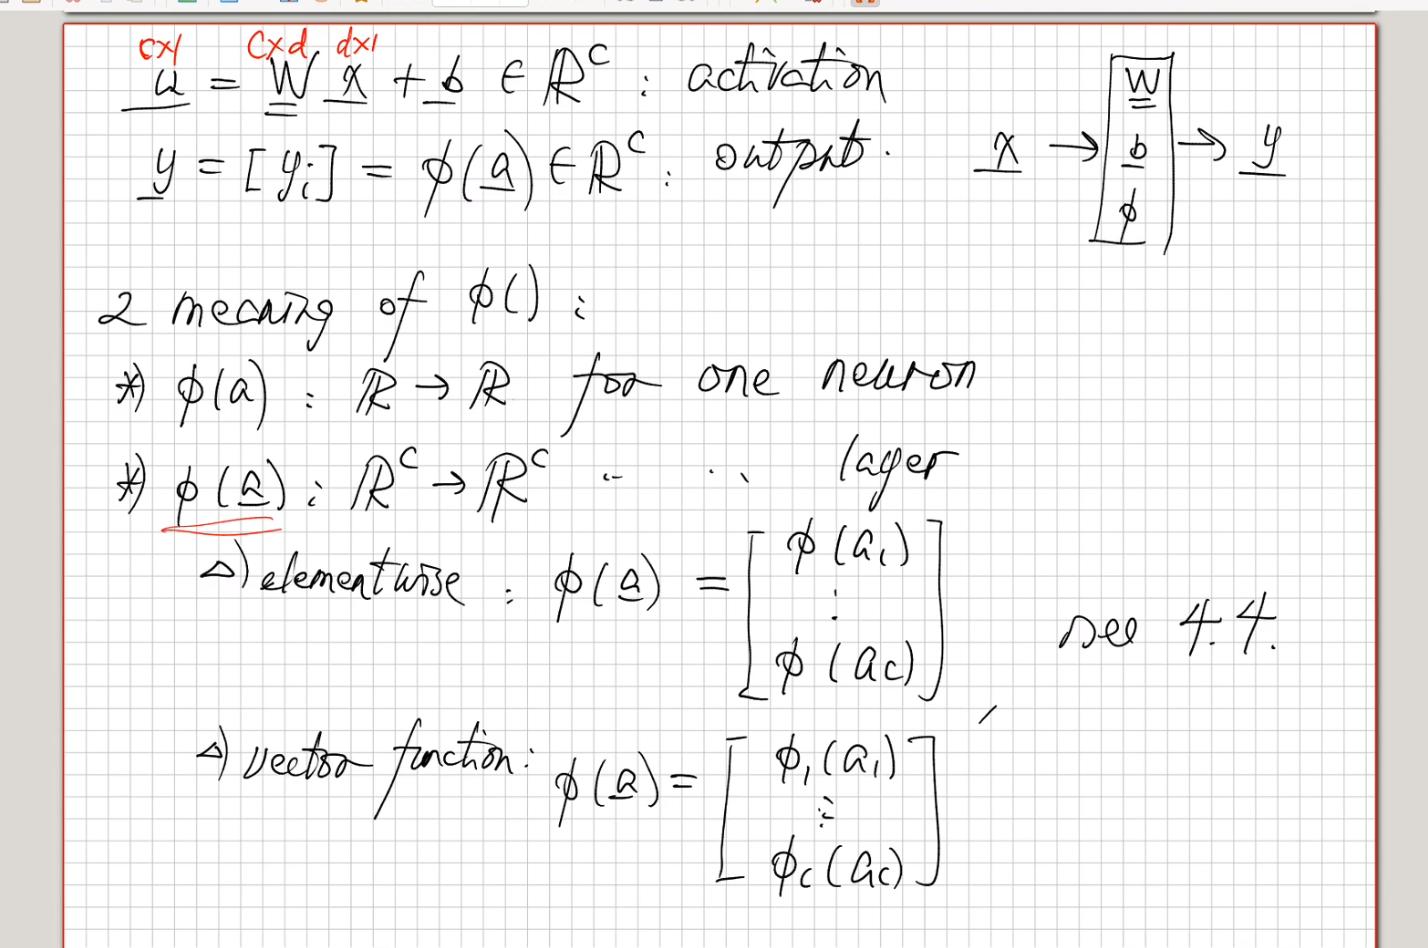 cx1 cxd dx1
a = W x + b ∈ ℝ^c : activation
y = [y_i] = ϕ(a) ∈ ℝ^c : output.
x → W b ϕ → y
2 meaning of ϕ() :
*) ϕ(a) : ℝ → ℝ for one neuron
*) ϕ(a) : ℝ^c → ℝ^c " " layer
△) elementwise : ϕ(a) = [ϕ(a_1) ⋮ ϕ(a_c)] see 4.4.
△) vector function : ϕ(a) = [ϕ_1(a_1) ⋮ ϕ_c(a_c)]